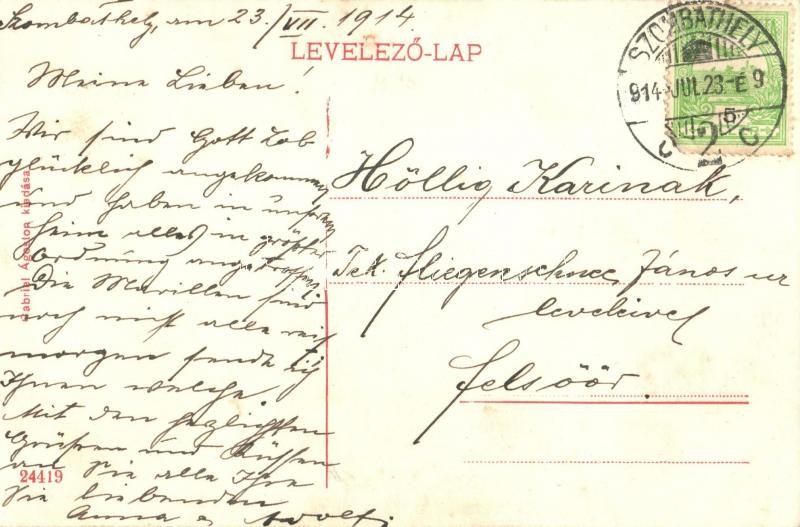 Szombathely, am 23./VII. 1914.
LEVELEZŐ-LAP
SZOMBATHELY
914 JUL.23-É 9
Meine Lieben!
Wir sind Gott Lob
glücklich angekommen
und haben in unserem
Heim alles in größter
Ordnung angetroffen.
Die Marillen sind
noch nicht alle reif
morgen sende ich
Ihnen welche.
Mit den herzlichsten
Grüßen und Küssen
an Sie alle Ihre
Sie liebenden
Anna u. Adolf
Höllig Karinak,
Tek. Fliegenschnee János úr
leveleivel
Felsőőr.
Gabriel Ágoston kiadása.
24419